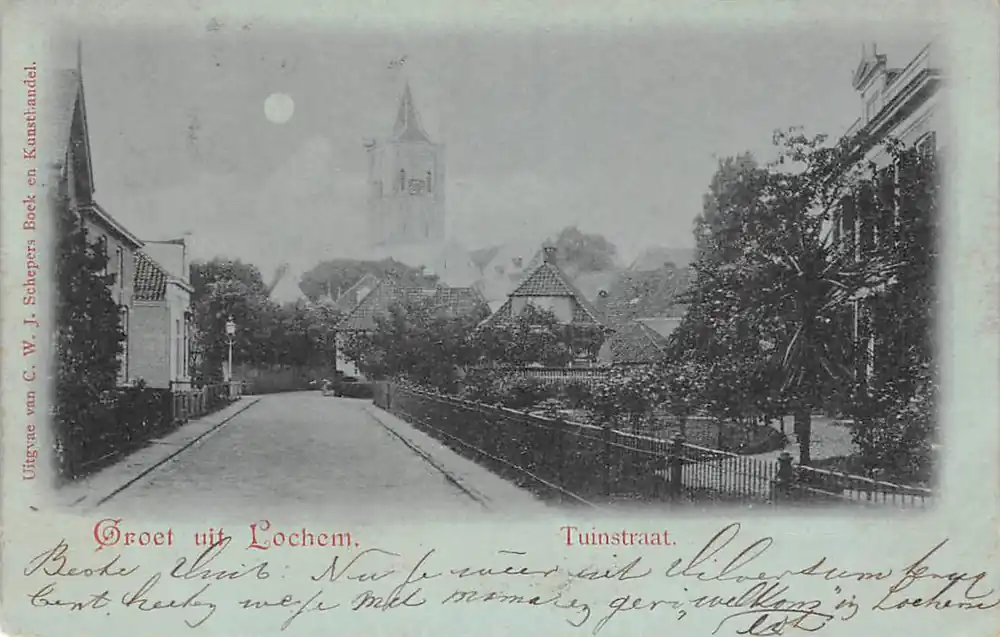 Uitgvae van C. W. J. Schepers Boek en Kunsthandel.
Groet uit Lochem.
Tuinstraat.
Beste Nu je weer uit Hilversum terug
bent, heeten wefje met mama "welkom" in Lochem